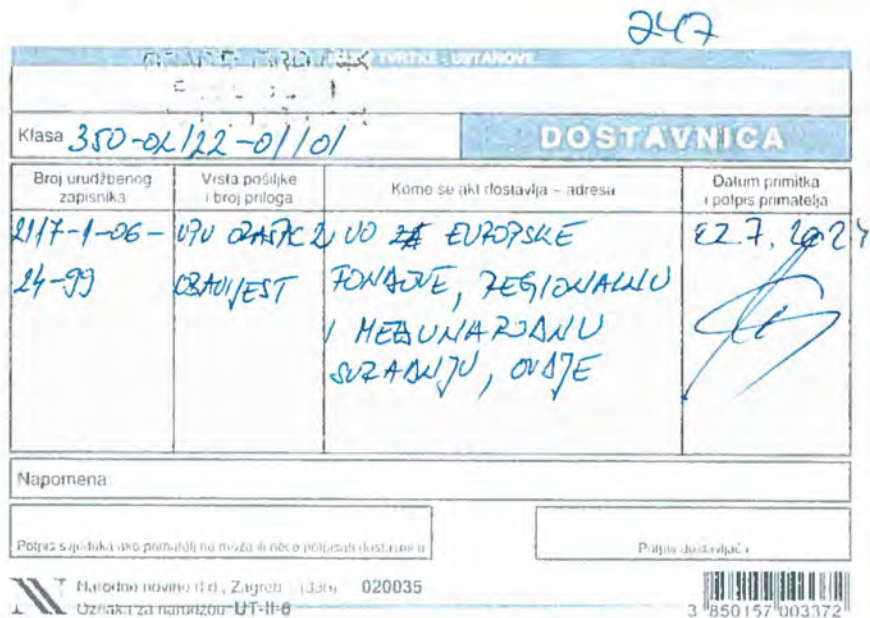 247
GRAD DUBROVNIK TVRTKE - USTANOVE
Klasa 350-02/22-01/01
DOSTAVNICA
Broj urudžbenog zapisnika
Vrsta pošiljke i broj priloga
Kome se akt dostavlja – adresa
Datum primitka i potpis primatelja
2117-1-06-
24-99
UPU
OBAVIJEST
UO ZA EUROPSKE
FONDOVE, REGIONALNU
I MEĐUNARODNU
SURADNJU, OVDJE
22.7.2024
Napomena:
Potpis svjedoka ako primatelj ne može ili neće potpisati dostavnicu
Potpis dostavljača
Narodne novine d.d., Zagreb 020035
Oznaka za narudžbu UT-II-6
3 850157 003372